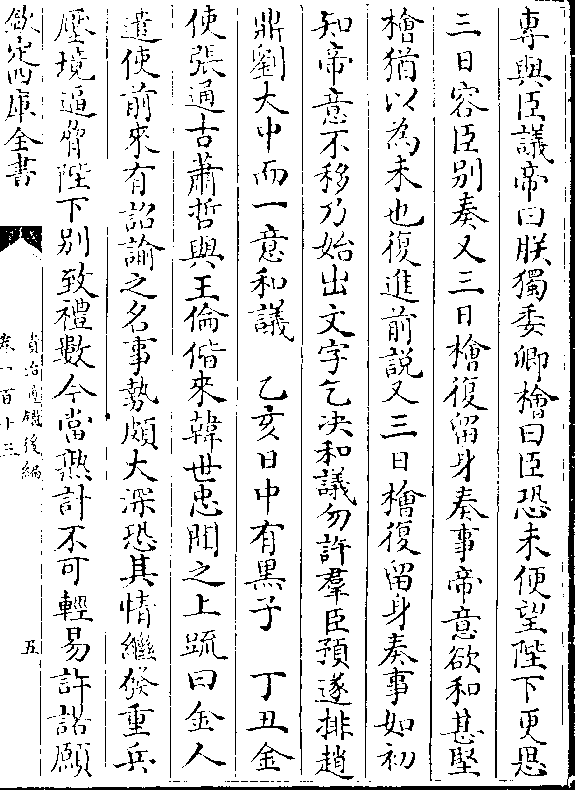 專與臣議帝曰朕獨委卿檜曰臣恐未便望陛下更思
三日容臣别奏又三日檜復留身奏事帝意欲和甚堅
檜猶以為未也復進前說又三日檜復留身奏事如初
知帝意不移乃始出文字乞決和議勿許羣臣預遂排趙
鼎劉大中而一意和議　乙亥日中有黒子　丁丑金
使張通古蕭哲與王倫偕來韓世忠聞之上疏曰金人
遣使前來有詔諭之名事勢頗大深恐其情繼發重兵
壓境逼脅陛下别致禮數今當熟計不可輕易許諾願
欽定四庫全書
資治通鑑後編
卷一百十三
五